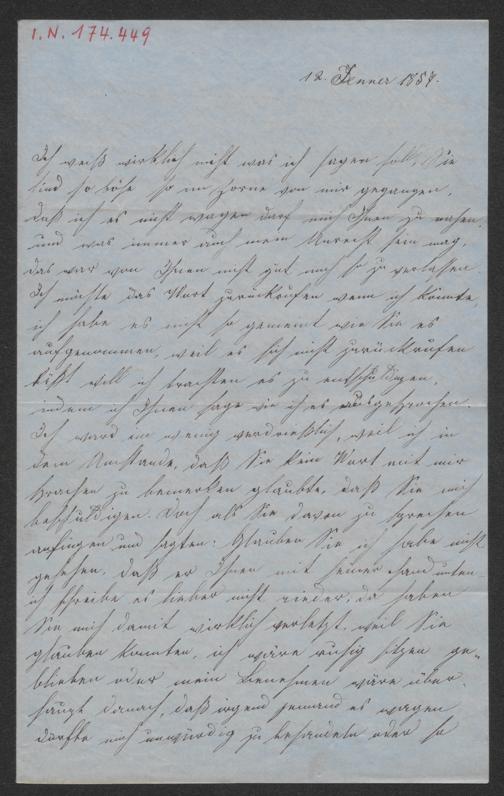 I.N. 174.449
12. Jenner 1857.
Ich weiß wirklich nicht was ich sagen soll, Sie
sind so böse so im Zorne von mir gegangen,
daß ich es nicht wagen darf mich Ihnen zu nahen,
und was immer auch mein Unrecht sein mag,
das war von Ihnen nicht gut mich so zu verlassen.
Ich möchte das Wort zurückrufen wenn ich könnte
ich habe es nicht so gemeint wie Sie es
aufgenommen, weil es sich nicht zurückrufen
läßt will ich trachten es zu entschuldigen,
indem ich Ihnen sage wie ich es ausgesprochen.
Ich ward ein wenig verdrießlich, weil ich in
dem Umstande, daß Sie kein Wort mit mir
sprachen zu bemerken glaubte, daß Sie mich
beschuldigen. Doch als Sie davon zu sprechen
anfingen und sagten: Glauben Sie ich habe nicht
gesehen, daß er Ihnen mit seiner Hand unten
ich schreibe es lieber nicht nieder, da haben
Sie mich damit wirklich verletzt, weil Sie
glauben konnten, ich wäre ruhig sitzen ge=
blieben oder mein Benehmen wäre über=
haupt danach, daß irgend jemand es wagen
dürfte mich unwürdig zu behandeln oder so